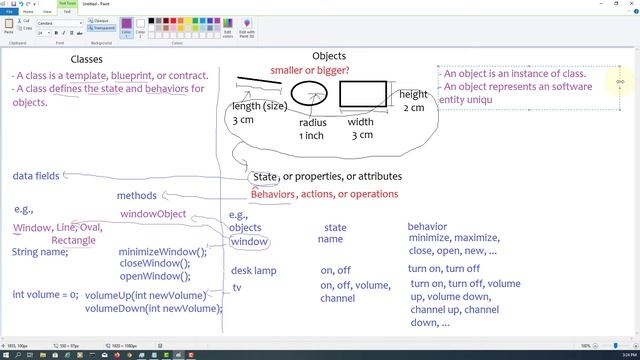 Untitled - Paint
File
Home
View
Text
Paste
Cut
Copy
Clipboard
Candara
24
Font
Opaque
Transparent
Background
Color 1
Color 2
Colors
Edit colors
Edit with Paint 3D
Classes
- A class is a template, blueprint, or contract.
- A class defines the state and behaviors for
objects.
Objects
smaller or bigger?
length (size)
3 cm
radius
1 inch
width
3 cm
height
2 cm
- An object is an instance of class.
- An object represents an software
entity uniqu
data fields
State, or properties, or attributes
methods
Behaviors, actions, or operations
e.g.,
windowObject
Window, Line, Oval,
Rectangle
String name;
minimizeWindow();
closeWindow();
openWindow();
int volume = 0;
volumeUp(int newVolume)
volumeDown(int newVolume);
e.g.,
objects
state
behavior
window
name
minimize, maximize,
close, open, new, ...
desk lamp
on, off
turn on, turn off
tv
on, off, volume,
channel
turn on, turn off, volume
up, volume down,
channel up, channel
down, ...
100%
3:24 PM